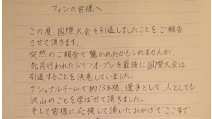 ファンの皆様へ
この度、国際大会を引退しましたことをご報告
させて頂きます。
突然のご報告で驚かれたかもしれませんが
先月行われたドイツオープンを最後に国際大会は
引退することを決意していました。
ナショナルチームで約13年間、選手として、人としても
沢山のことを学ばせて頂きました。
そして皆様に応援して頂いたおかげでここまで